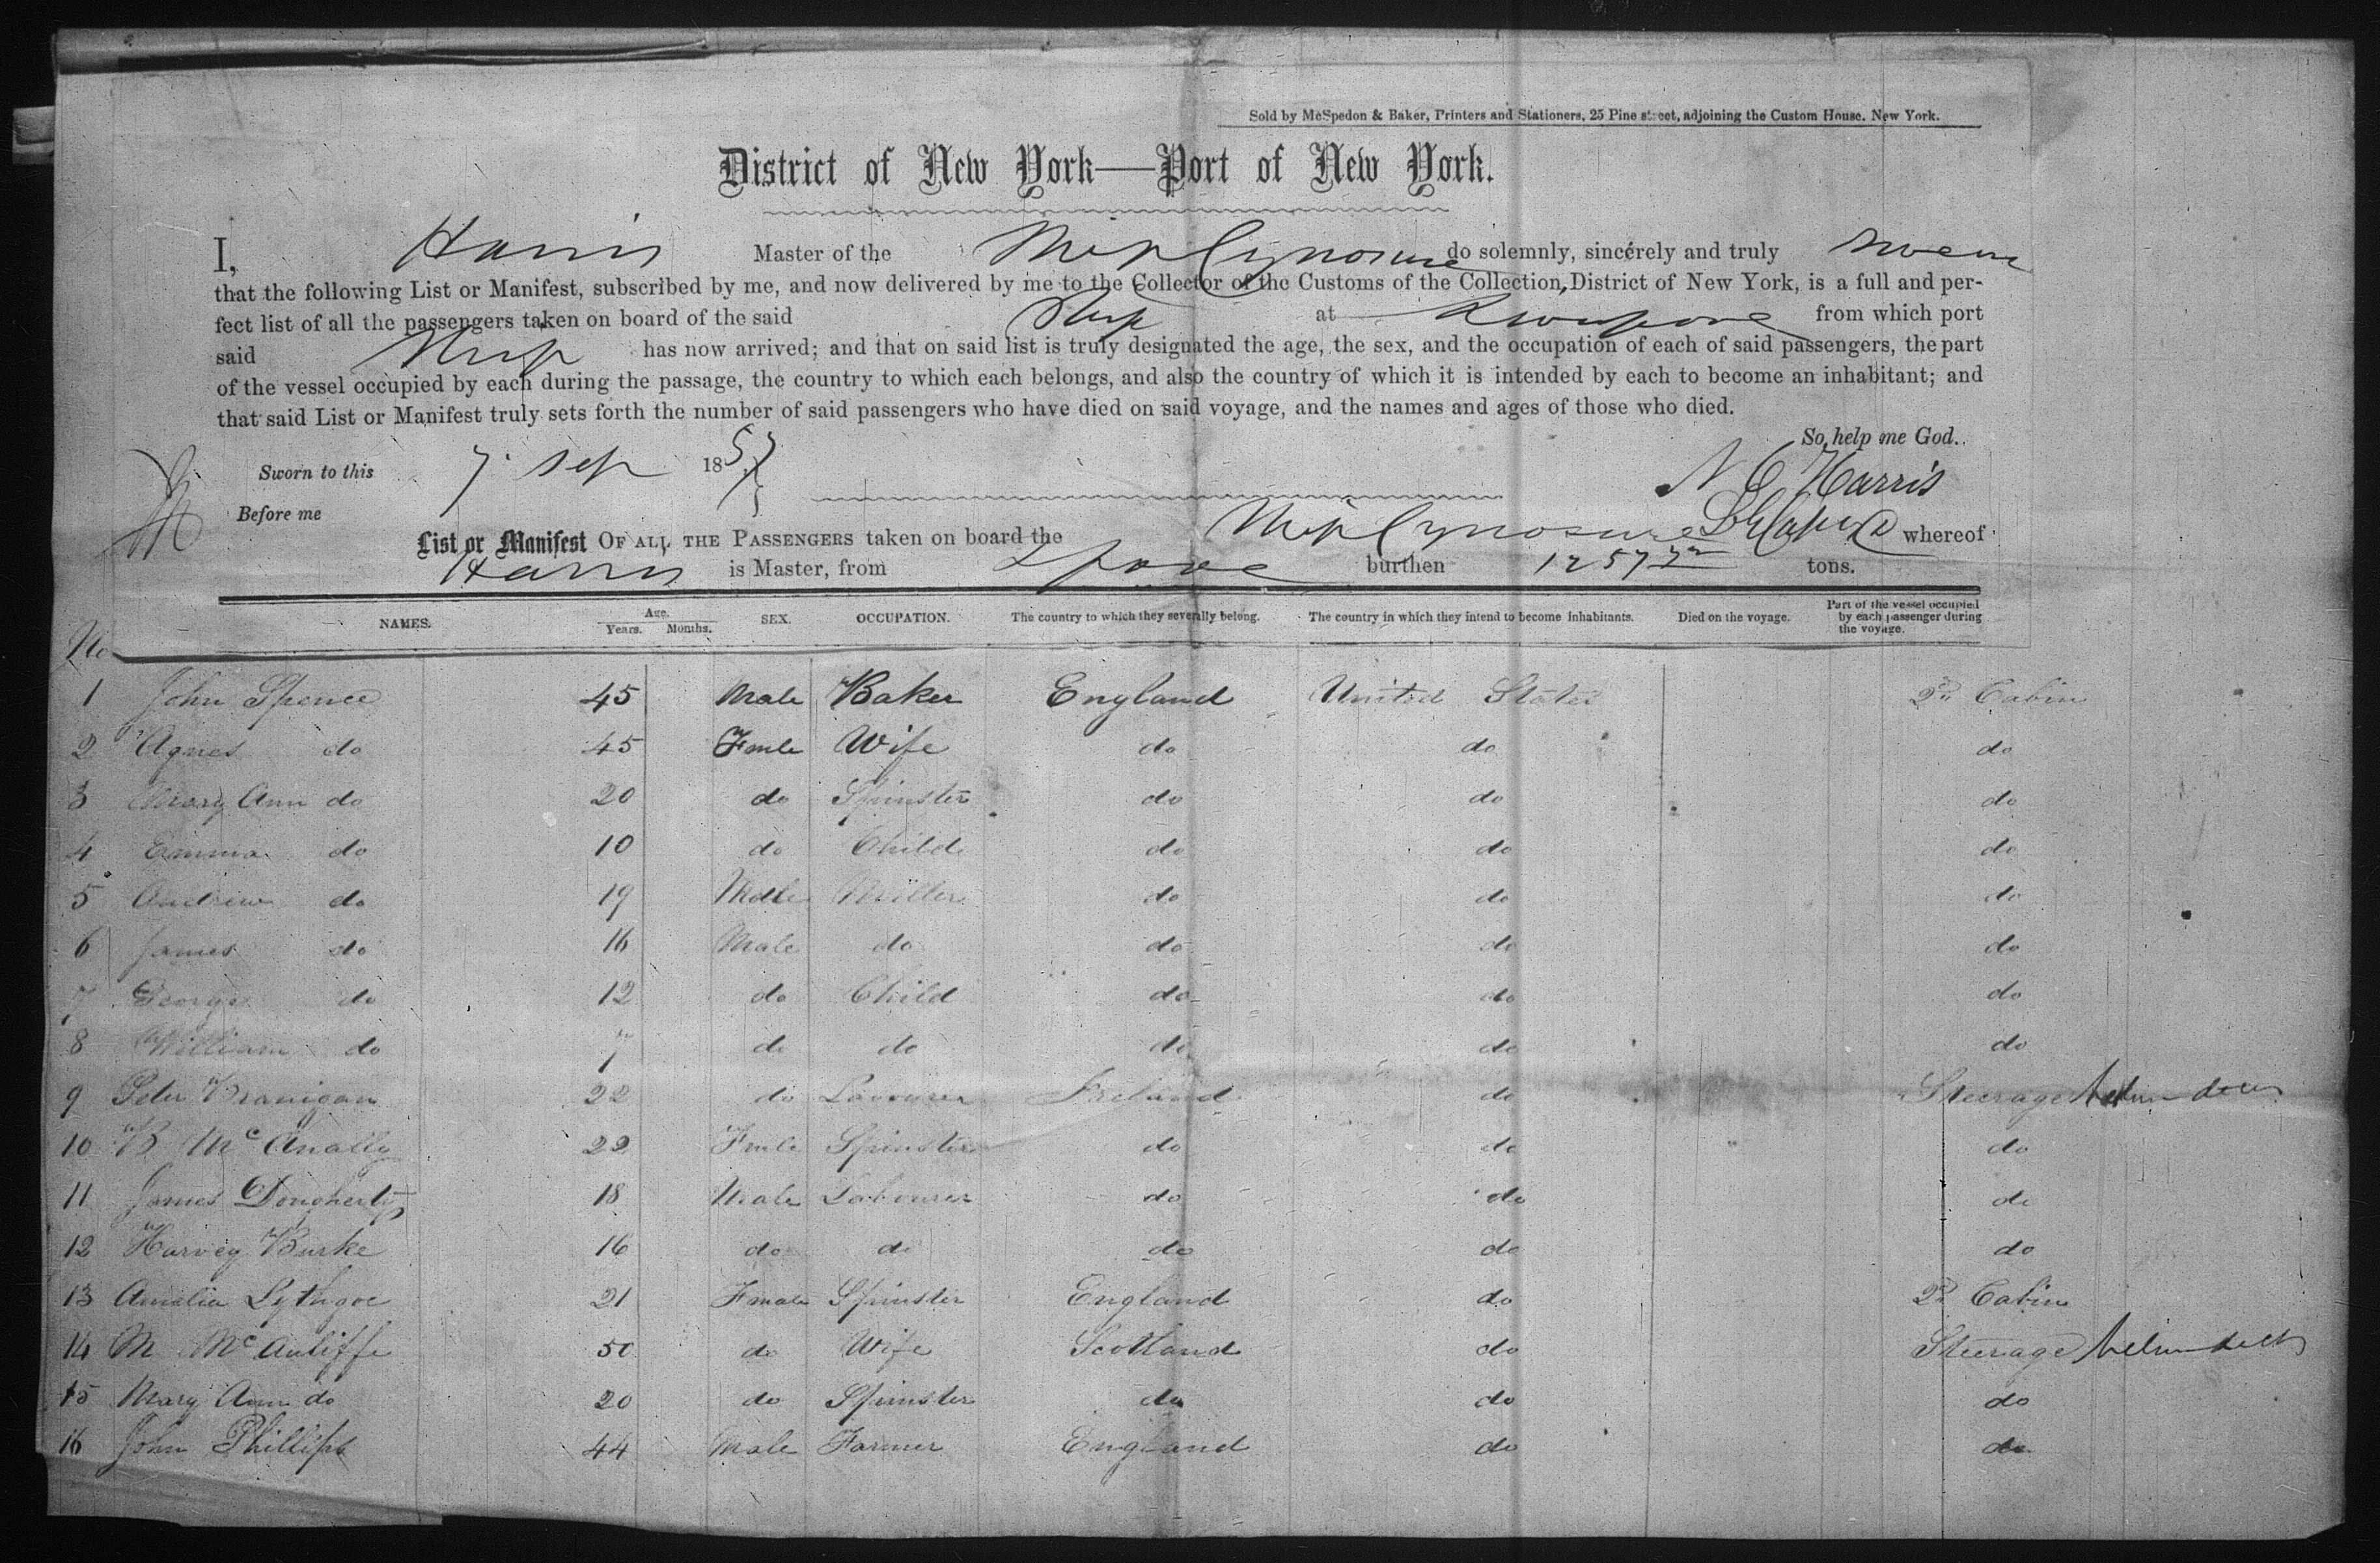 Sold by McSpedon & Baker, Printers and Stationers, 25 Pine street, adjoining the Custom House. New York.
District of New York—Port of New York.
I, Harris Master of the Ship Cynosure do solemnly, sincerely and truly swear
that the following List or Manifest, subscribed by me, and now delivered by me to the Collector of the Customs of the Collection District of New York, is a full and per-
fect list of all the passengers taken on board of the said Ship at Liverpool from which port
said Ship has now arrived; and that on said list is truly designated the age, the sex, and the occupation of each of said passengers, the part
of the vessel occupied by each during the passage, the country to which each belongs, and also the country of which it is intended by each to become an inhabitant; and
that said List or Manifest truly sets forth the number of said passengers who have died on said voyage, and the names and ages of those who died.
So help me God.
Sworn to this 7 Sep 1857 N C Harris
Before me
List or Manifest OF ALL THE PASSENGERS taken on board the Ship Cynosure whereof
Harris is Master, from Lpool burthen 1257 tons.
No NAMES. Age. Years. Months. SEX. OCCUPATION. The country to which they severally belong. The country in which they intend to become inhabitants. Died on the voyage. Part of the vessel occupied by each passenger during the voyage.
1 John Spence 45 Male Baker England United States 2d Cabin
2 Agnes do 45 Fmle Wife do do do
3 Mary Ann do 20 do Spinster do do do
4 Emma do 10 do Child do do do
5 Andrew do 19 Male Miller do do do
6 James do 16 Male do do do do
7 George do 12 do Child do do do
8 William do 7 do do do do do
9 Peter Branigan 22 do Labourer Ireland do Steerage
10 B McAnally 22 Fmle Spinster do do do
11 James Dougherty 18 Male Labourer do do do
12 Harvey Burke 16 do do do do do
13 Amelia Lythgoe 21 Fmale Spinster England do 2d Cabin
14 M McAuliffe 50 do Wife Scotland do Steerage
15 Mary Ann do 20 do Spinster do do do
16 John Phillips 44 Male Farmer England do do